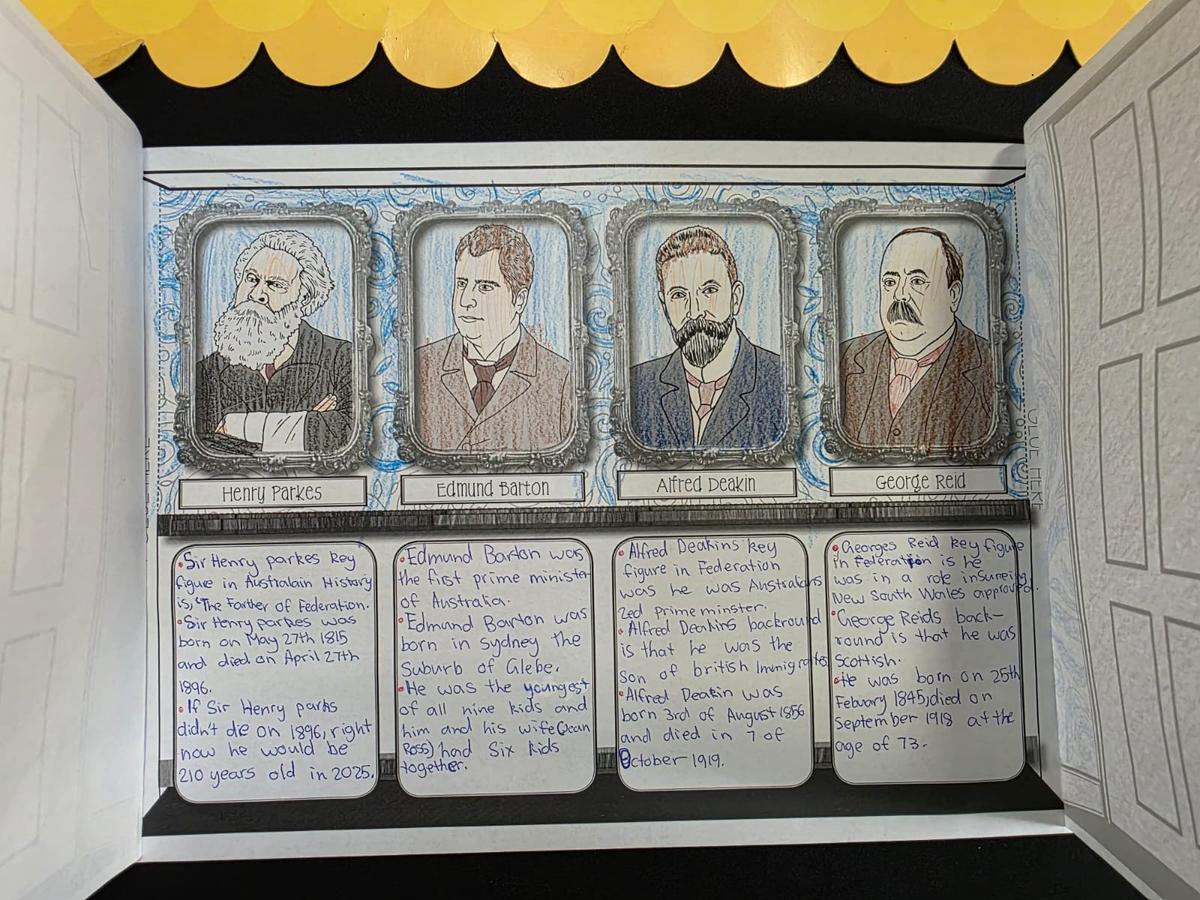 Henry Parkes
Edmund Barton
Alfred Deakin
George Reid
GLUE HERE
• Sir Henry parkes key
figure in Australain History
is, "The Farther of Federation.
• Sir Henry parkes was
born on May 27th 1815
and died on April 27th
1896.
• If Sir Henry parks
didn't die on 1896, right
now he would be
210 years old in 2025.
• Edmund Barton was
the first prime minister
of Australia.
• Edmund Barton was
born in sydney the
suburb of Glebe.
• He was the youngest
of all nine kids and
him and his wife (Jean
Ross) had Six kids
together.
• Alfred Deakins key
figure in Federation
was he was Australians
2ed primeminster.
• Alfred Deakins backround
is that he was the
son of british Immigrates
• Alfred Deakin was
born 3rd of August 1856
and died in 7 of
October 1919.
• Georges Reid key figure
in Federation is he
was in a role insureing
New South Wales approved.
• George Reids back-
round is that he was
Scottish.
• He was born on 25th
Febuary 1845, died on
September 1918 at the
age of 73.